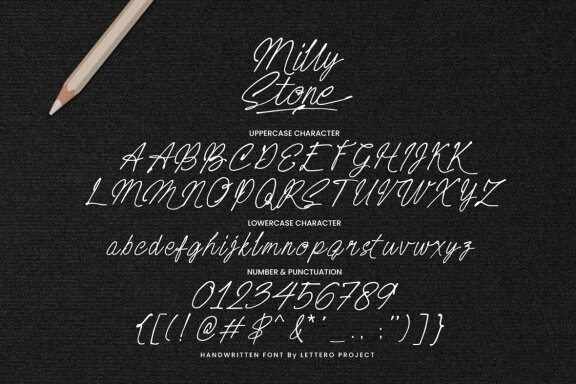 Milly
Stone
UPPERCASE CHARACTER
AABBCDEEFGHIJKK
LMMMNOPQRSTUVWXYZ
LOWERCASE CHARACTER
abcdefghijklmnopqrstuvwxyz
NUMBER & PUNCTUATION
0123456789
{[(!@#$^&*'_.,;")]}
HANDWRITTEN FONT By LETTERO PROJECT